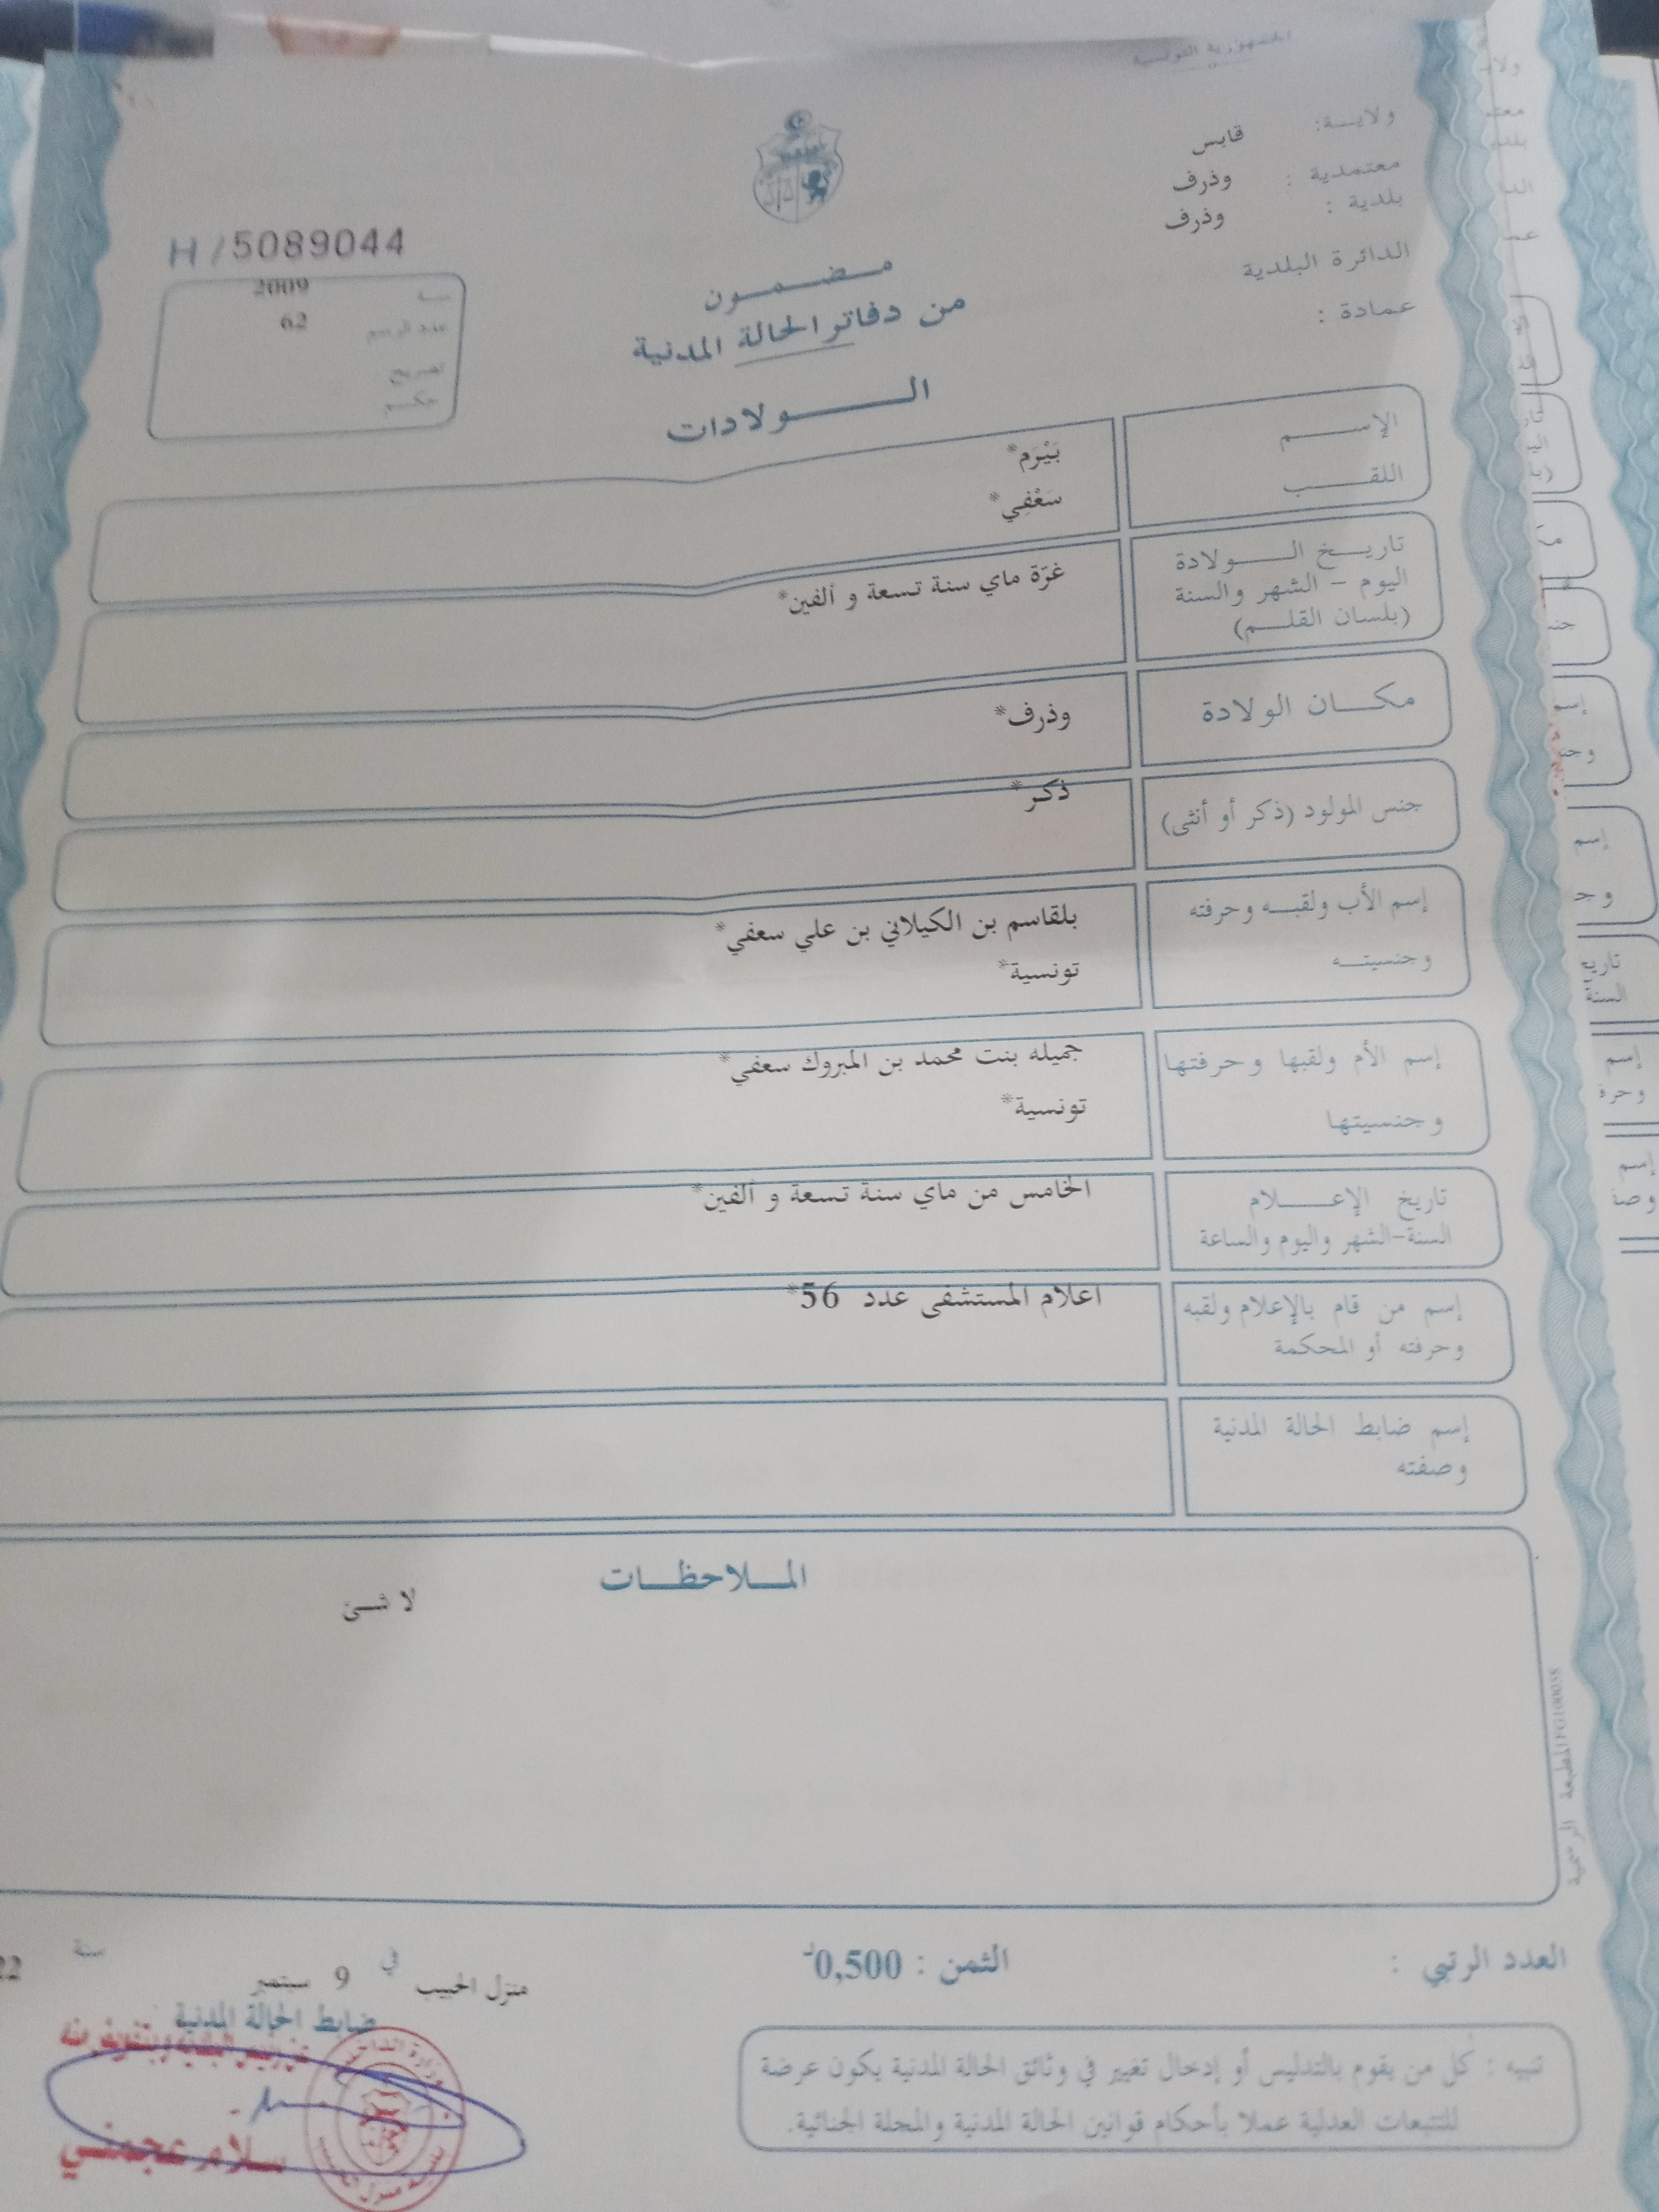 الجمهورية التونسية
ولايـــة: قابس
معتمدية : وذرف
بلدية : وذرف
الدائرة البلدية
عمادة :
H/5089044
سنة 2009
عدد الرسم 62
تصريح
حكم
مـضـمـون
من دفاتر الحالة المدنية
الـــولادات
الإســـم بَيْرَم*
اللقـــب سَعْفِي*
تاريـخ الـــولادة غرّة ماي سنة تسعة و ألفين*
اليوم – الشهر والسنة
(بلسان القلـــم)
مكـــان الولادة وذرف*
جنس المولود (ذكر أو أنثى) ذكر*
إسم الأب ولقبـه وحرفته بلقاسم بن الكيلاني بن علي سعفي*
وجنسيتـــه تونسية*
إسم الأم ولقبها وحرفتها جميله بنت محمد بن المبروك سعفي*
وجنسيتها تونسية*
تاريخ الإعـــلام الخامس من ماي سنة تسعة و ألفين*
السنة-الشهر واليوم والساعة
إسم من قام بالإعلام ولقبه اعلام المستشفى عدد 56*
وحرفته أو المحكمة
إسم ضابط الحالة المدنية
وصفته
المـلاحظـات
لا شـئ
المطبعة الرسمية
العدد الرتبي :
الثمن : 0,500د
منزل الحبيب في 9 سبتمبر سنة 22
ضابط الحالة المدنية
سلام عجمي
تنبيه : كل من يقوم بالتدليس أو إدخال تغيير في وثائق الحالة المدنية يكون عرضة
للتتبعات العدلية عملا بأحكام قوانين الحالة المدنية والمجلة الجنائية.